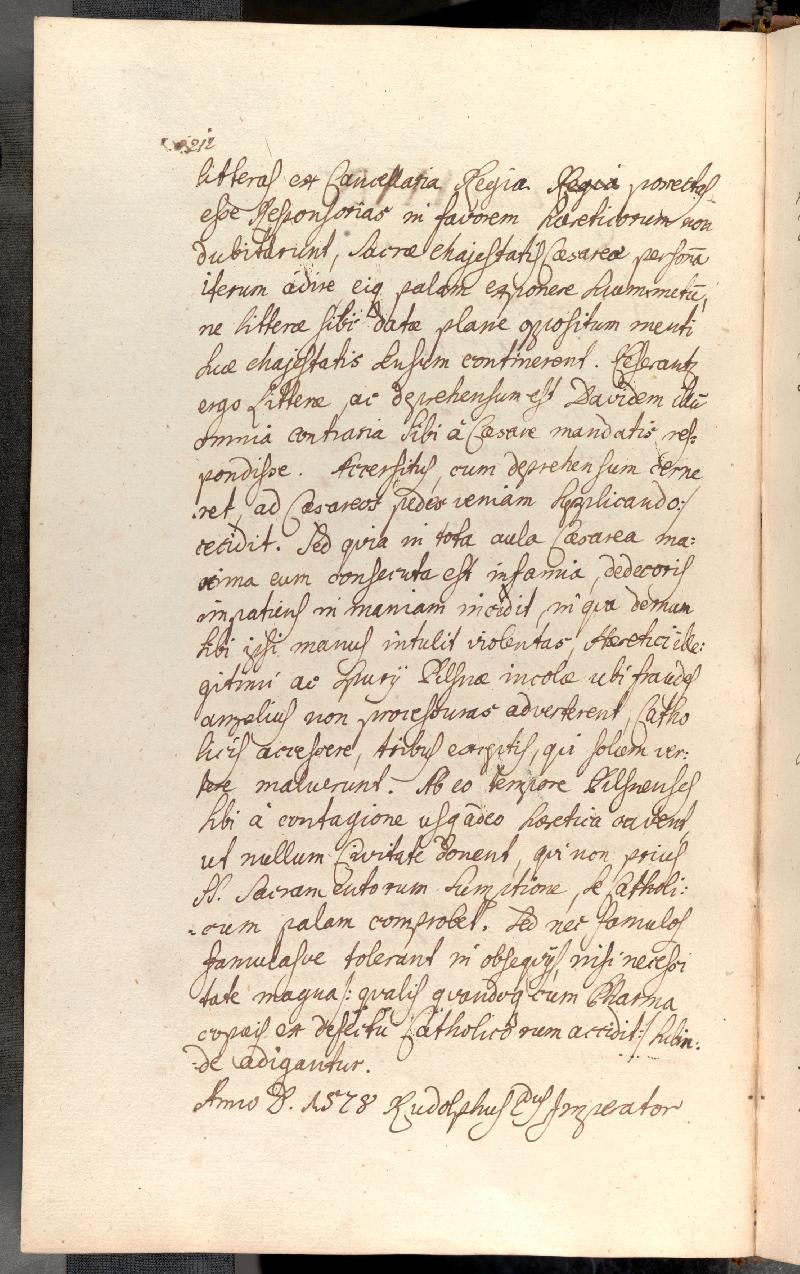 litteras ex Cancellaria Regia Regia porrectas
esse Responsorias in favorem hæreticorum non
dubitarunt, Sacræ Majestatis Cæsareæ personã
iterum adire eiq palam exponere suum metũ,
ne litteræ sibi datæ plane opositum menti
suæ Majestatis sensum continerent. Reserantur
ergo Litteræ ac deprehensum est Davidem illũ
omnia contraria sibi à Cæsare mandatis res:
pondisse. Accersitus, cum deprehensum cerne
ret, ad Cæsareos pedes veniam supplicando:/
cecidit. Sed quia in tota aula Cæsarea ma:
xima eum consecuta est infamia, dedecoris
impatiens in maniam incidit, in qua demum
sibi ipsi manus intulit violentas, Hæretici ille:
gitimi ac spurÿ Pilsnæ incolæ ubi fraudes
amplius non processuras adverterent, Catho
licis accessere, tribus exceptis, qui solum ver:
tere maluerunt. Ab eo tempore Pilsnenses
sibi à contagione usq adeo hæretica cavent,
ut nullum Civitate donent, qui non prius
SS. Sacramentorum sumptione, se Catholi:
cum palam comprobet. Sed nec famulos
famulasve tolerant in obsequÿs, nisi necessi
tate magna /: qualis quandoq cum Pharma
copæis ex defectu Catholicorum accidit :/ subin:
de adigantur.
Anno D. 1578 Rudolphus 2dus Imperator